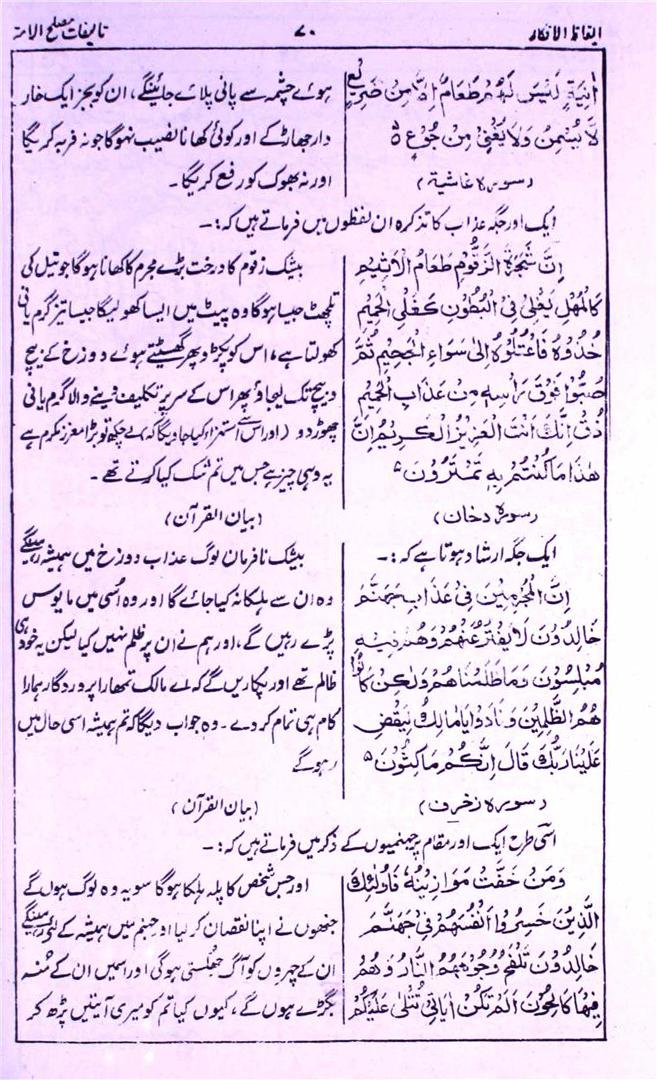 ایقاظ الافکار
۷۰
تالیفات مصلح الامت
اٰنِیَۃٍ لَیْسَ لَھُمْ طَعَامٌ اِلَّا مِنْ ضَرِیْعٍ
لَا یُسْمِنُ وَلَا یُغْنِیْ مِنْ جُوْعٍ ہ
(سورہ غاشیۃ)
ہوئے چشمہ سے پانی پلائے جائینگے، ان کو بجز ایک خار
دار جھاڑ کے اور کوئی کھانا نصیب نہوگا جو نہ فربہ کریگا
اور نہ بھوک کو رفع کریگا۔
ایک اور جگہ عذاب کا تذکرہ ان لفظوں میں فرماتے ہیں کہ:۔
اِنَّ شَجَرَۃَ الزَّقُّوْمِ طَعَامُ الْاَثِیْمِ
کَالْمُھْلِ یَغْلِیْ فِی الْبُطُوْنِ کَغَلْیِ الْحَمِیْمِ
خُذُوْہُ فَاعْتِلُوْہُ اِلٰی سَوَاءِ الْجَحِیْمِ ثُمَّ
صُبُّوْا فَوْقَ رَاْسِہٖ مِنْ عَذَابِ الْحَمِیْمِ
ذُقْ اِنَّکَ اَنْتَ الْعَزِیْزُ الْکَرِیْمُ اِنَّ
ھٰذَا مَا کُنْتُمْ بِہٖ تَمْتَرُوْنَ ہ
(سورہ دخان)
بیشک زقوم کا درخت بڑے مجرم کا کھانا ہوگا جو تیل کی
تلچھٹ جیسا ہوگا وہ پیٹ میں ایسا کھولیگا جیسا تیز گرم پانی
کھولتا ہے، اس کو پکڑو پھر گھسیٹتے ہوئے دوزخ کے بیچ
و بیچ تک لیجاؤ پھر اس کے سر پر تکلیف دینے والا گرم پانی
چھوڑ دو (اور اس سے استہزاءً کہا جاویگا کہ) لے چکھ تو بڑا معزز مکرم ہے
یہ وہی چیز ہے جس میں تم شک کیا کرتے تھے۔
(بیان القرآن)
ایک جگہ ارشاد ہوتا ہے کہ:۔
اِنَّ الْمُجْرِمِیْنَ فِیْ عَذَابِ جَھَنَّمَ
خَالِدُوْنَ لَا یُفَتَّرُ عَنْھُمْ وَھُمْ فِیْہِ
مُبْلِسُوْنَ وَمَا ظَلَمْنَاھُمْ وَلٰکِنْ کَانُوْا
ھُمُ الظّٰلِمِیْنَ وَنَادَوْا یَا مَالِکُ لِیَقْضِ
عَلَیْنَا رَبُّکَ قَالَ اِنَّکُمْ مَاکِثُوْنَ ہ
(سورہ زخرف)
بیشک نافرمان لوگ عذاب دوزخ میں ہمیشہ رہینگے
وہ ان سے ہلکا نہ کیا جائے گا اور وہ اُسی میں مایوس
پڑے رہیں گے، اور ہم نے ان پر ظلم نہیں کیا لیکن یہ خود ہی
ظالم تھے اور پکاریں گے کہ اے مالک تمھارا پروردگار ہمارا
کام ہی تمام کر دے۔ وہ جواب دیگا کہ تم ہمیشہ اسی حال میں
رہو گے
(بیان القرآن)
اسی طرح ایک اور مقام پر جہنمیوں کے ذکر میں فرماتے ہیں کہ:۔
وَمَنْ خَفَّتْ مَوَازِیْنُہٗ فَاُولٰئِکَ
الَّذِیْنَ خَسِرُوْا اَنْفُسَھُمْ فِیْ جَھَنَّمَ
خَالِدُوْنَ تَلْفَحُ وُجُوْھَھُمُ النَّارُ وَھُمْ
فِیْھَا کَالِحُوْنَ اَلَمْ تَکُنْ اٰیَاتِیْ تُتْلٰی عَلَیْکُمْ
اور جس شخص کا پلہ ہلکا ہوگا سو یہ وہ لوگ ہوں گے
جنھوں نے اپنا نقصان کر لیا اور جہنم میں ہمیشہ کے لئے رہینگے
ان کے چہروں کو آگ جھلستی ہوگی اور اسمیں ان کے مُنہ
بگڑے ہوں گے، کیوں کیا تم کو میری آیتیں پڑھ کر